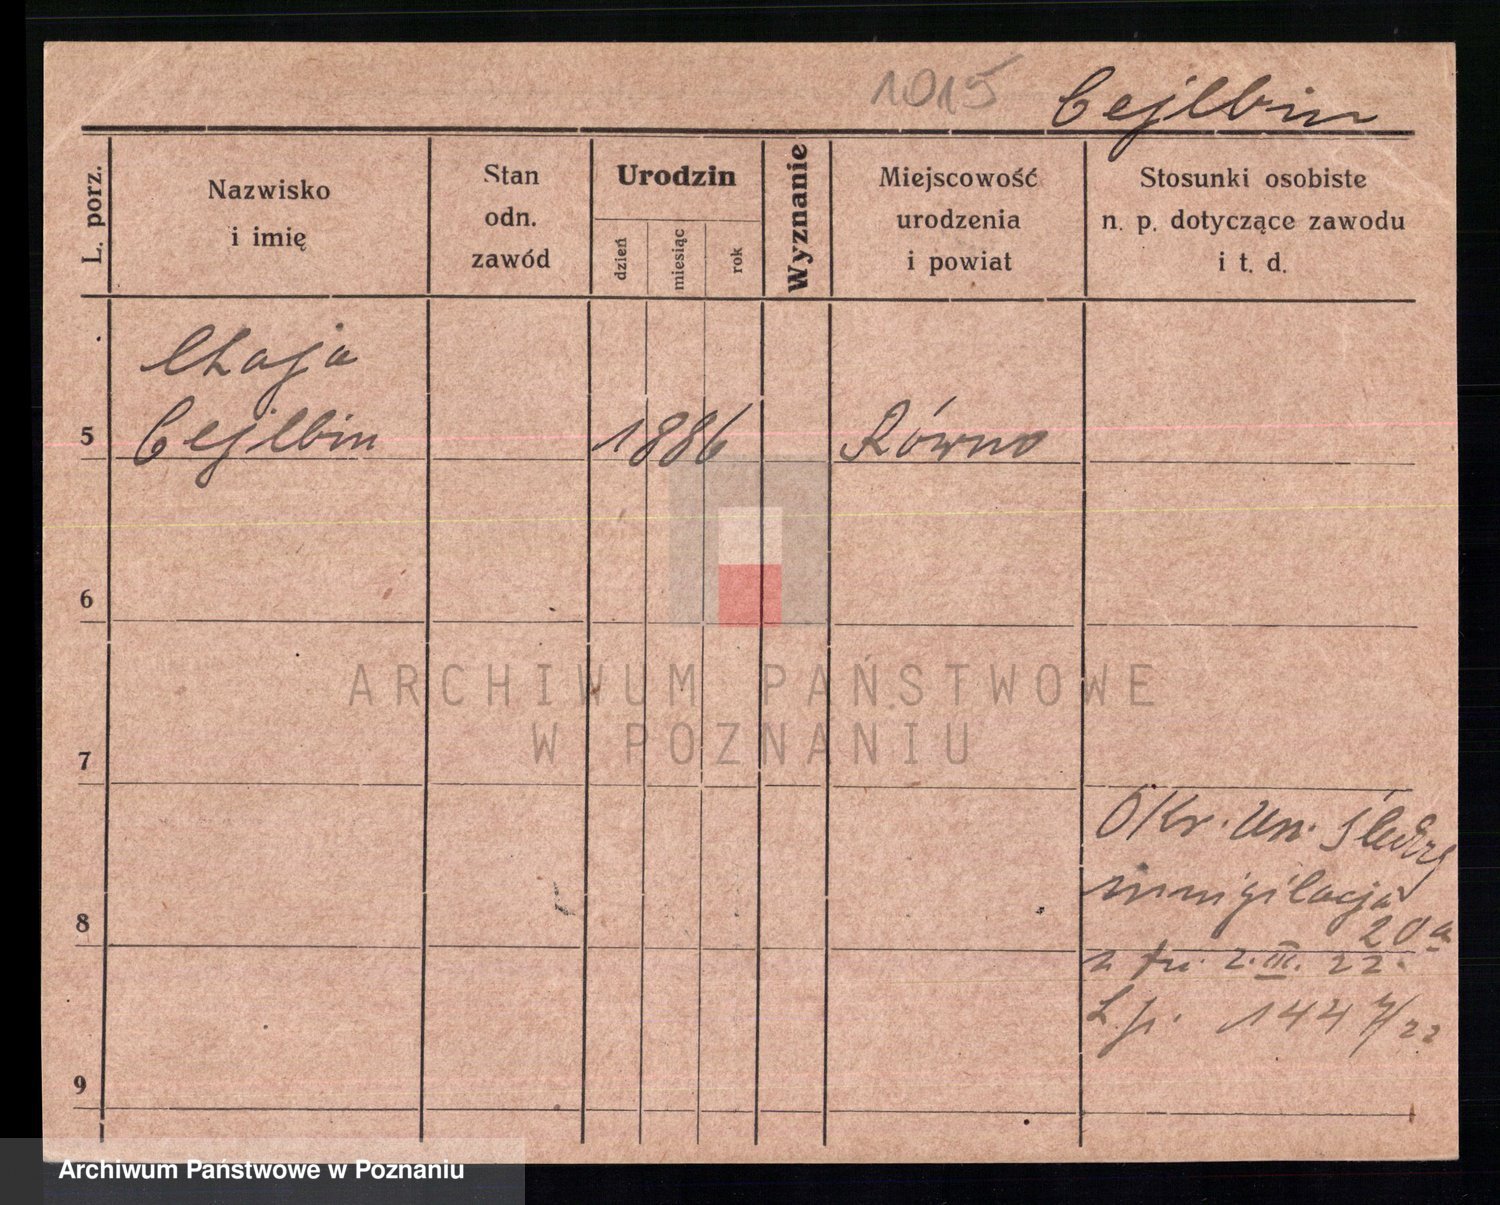 1015 Cejlbin
L. porz.
Nazwisko
i imię
Stan
odn.
zawód
Urodzin
dzień
miesiąc
rok
Wyznanie
Miejscowość
urodzenia
i powiat
Stosunki osobiste
n. p. dotyczące zawodu
i t. d.
Chaja
5 Cejlbin 1886 Równo
6
7
Okr. Un. Śledczy
inwigilacja
20a
8
z dn. 2.III.22.
L.p. 1447/22
9
ARCHIWUM PAŃSTWOWE
W POZNANIU
Archiwum Państwowe w Poznaniu